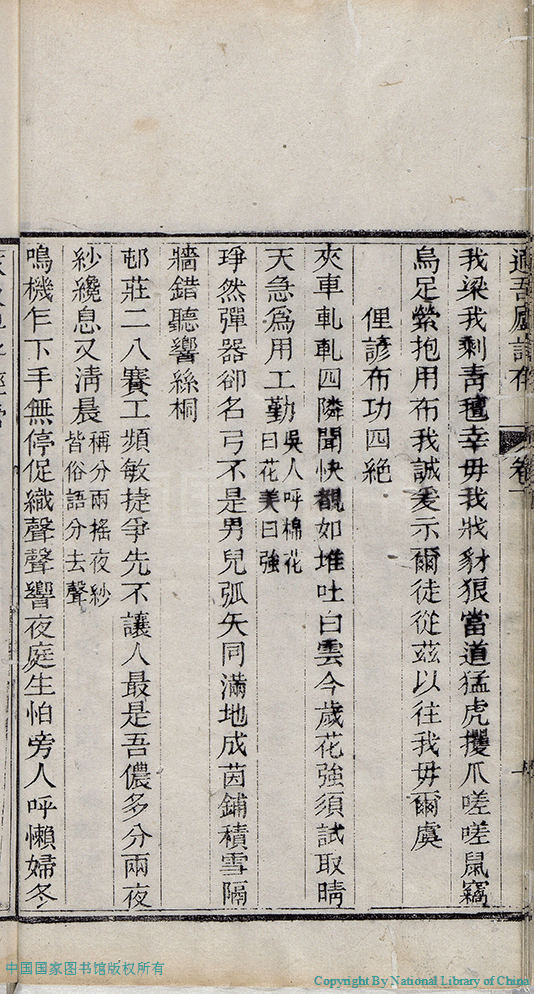 我梁我剩青氊幸毋我戕豺狼當道猛虎攫爪嗟嗟鼠竊
烏足縈抱用布我誠爰示爾徒從茲以往我毋爾虞
俚諺布功四絕
夾車軋軋四隣聞快覩如堆吐白雲今歲花強須試取晴
天急爲用工勤吳人呼棉花
曰花美曰強
琤然彈器卻名弓不是男兒弧矢同滿地成茵鋪積雪隔
牆錯聽響絲桐
邨莊二八賽工頻敏捷爭先不讓人最是吾儂多分兩夜
紗纔息又清晨稱分兩搖夜紗
皆俗語分去聲
鳴機乍下手無停促織聲聲響夜庭生怕旁人呼懶婦冬
卷一
中国国家图书馆版权所有
Copyright By National Library of China